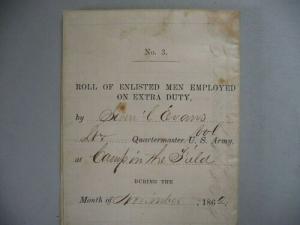 No. 3.
ROLL OF ENLISTED MEN EMPLOYED
ON EXTRA DUTY,
by Evans
Quartermaster Vol U. S. Army,
at Camp in the Field
DURING THE
Month of November , 186